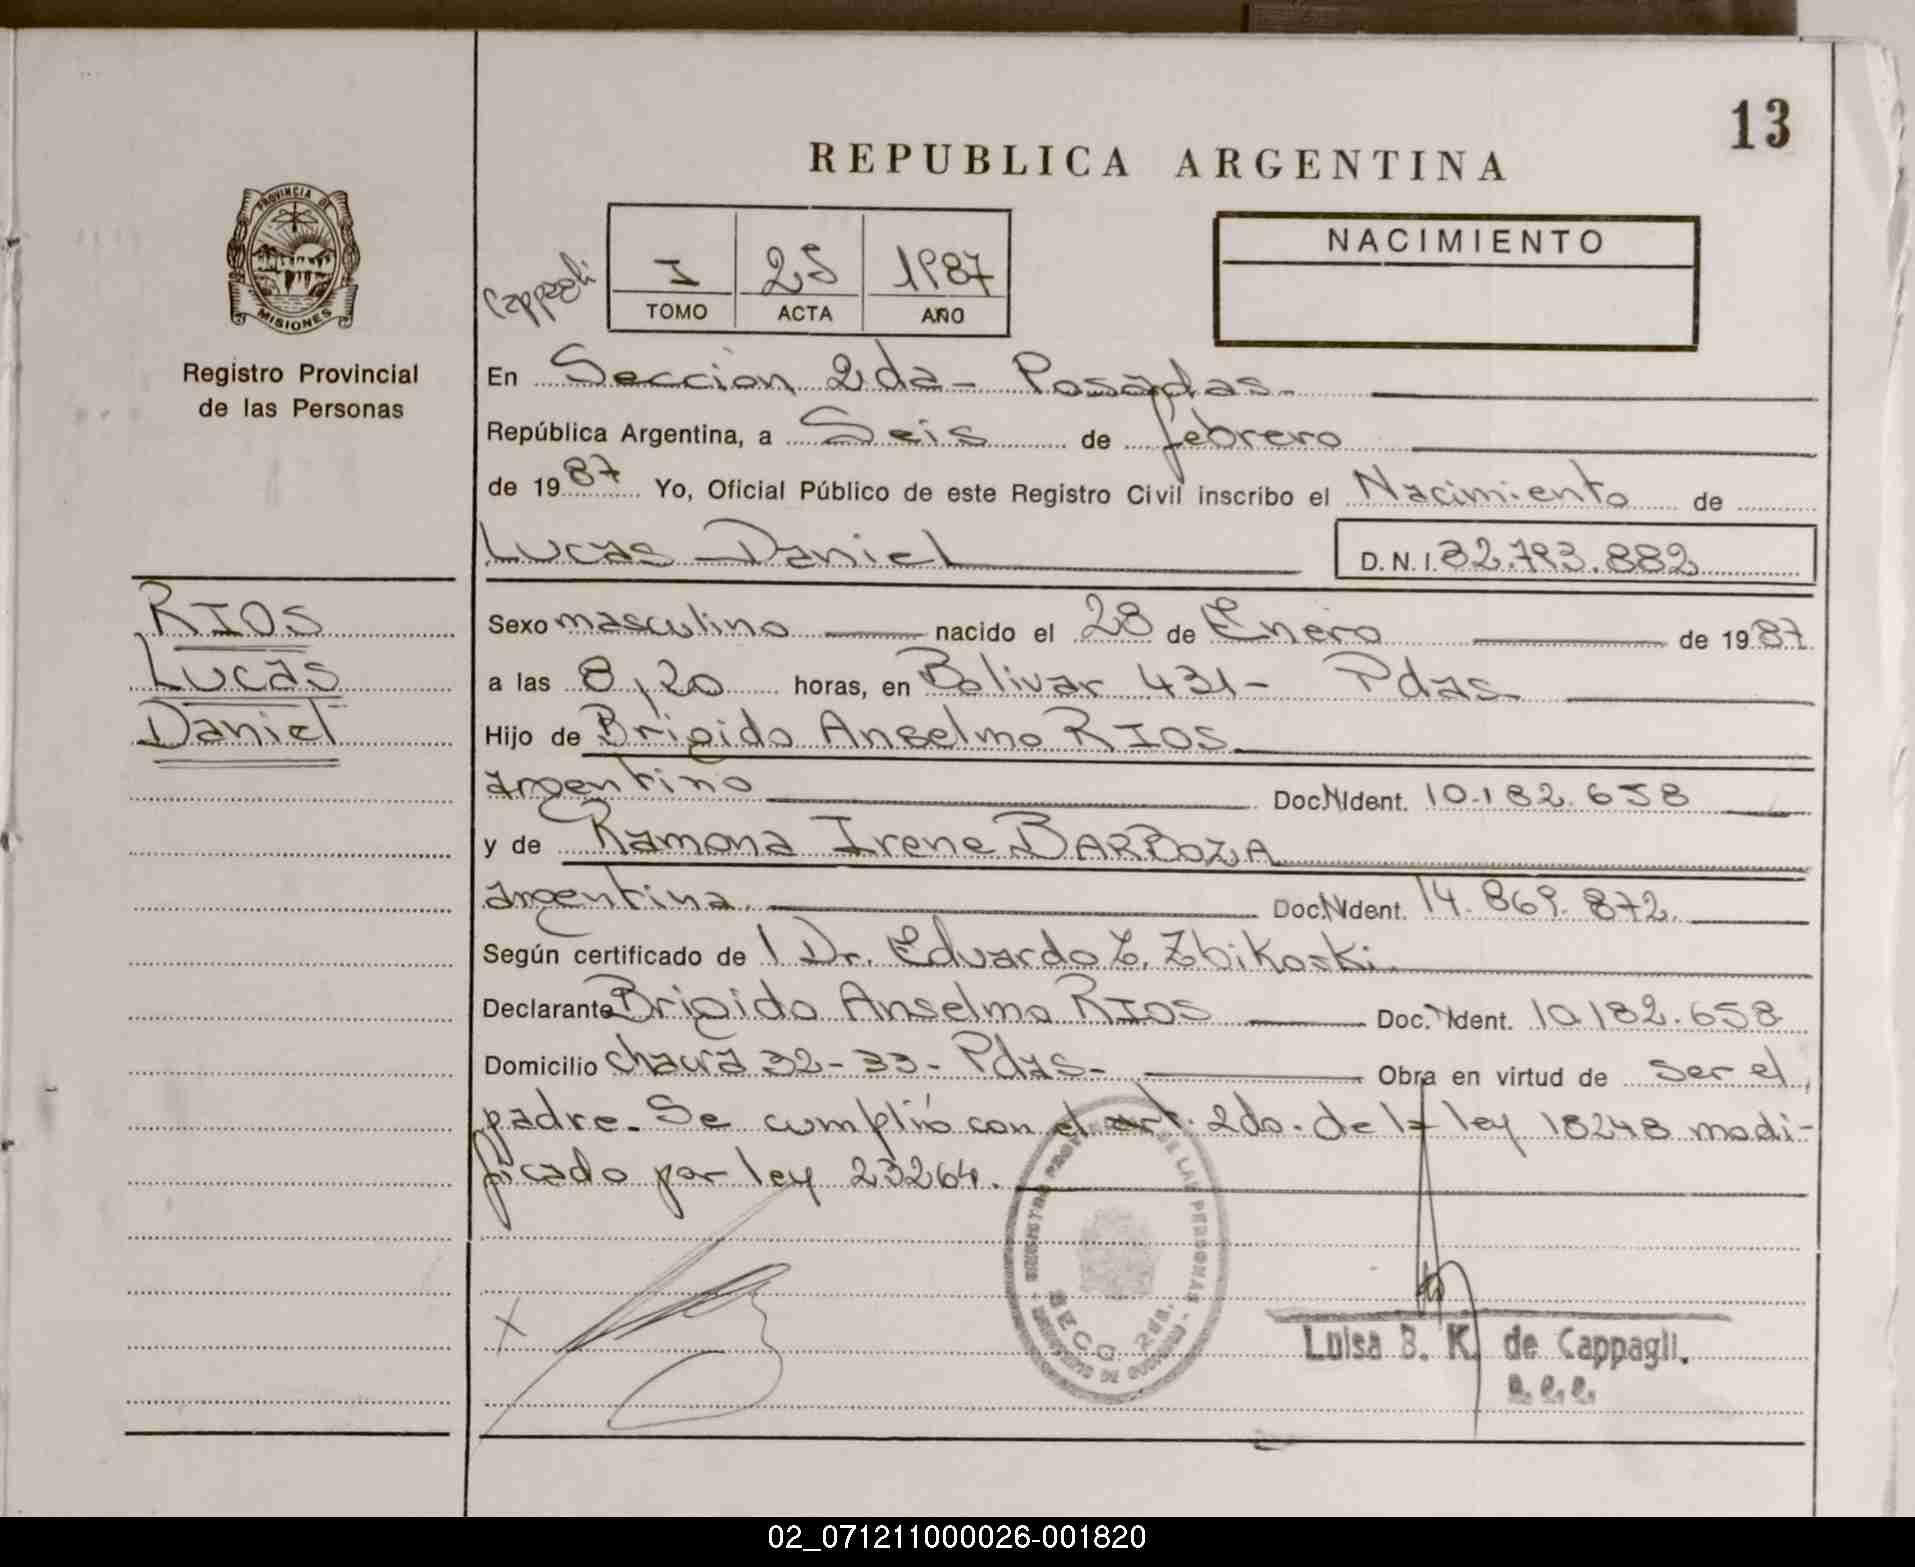 13
REPUBLICA ARGENTINA
PROVINCIA DE
MISIONES
Registro Provincial
de las Personas
Cappagli
I 25 1987
TOMO ACTA AÑO
NACIMIENTO
En Sección 2da - Posadas -
República Argentina, a Seis de febrero
de 1987 Yo, Oficial Público de este Registro Civil inscribo el Nacimiento de
Lucas Daniel D.N.I. 32.793.882
RIOS
Lucas
Daniel
Sexo masculino nacido el 28 de Enero de 1987
a las 8,20 horas, en Bolivar 431 - Pdas -
Hijo de Brigido Anselmo RIOS
argentino Doc. N Ident. 10.182.658
y de Ramona Irene BARBOZA
argentina Doc. N Ident. 14.869.872
Según certificado de l Dr. Eduardo Z. Zbikoski
Declarante Brigido Anselmo RIOS Doc. N Ident. 10.182.658
Domicilio chacra 32-33 - Pdas - Obra en virtud de ser el
padre. Se cumplió con el art. 2do. de la ley 18248 modi-
ficado por ley 23264.
X
SECC. 2da.
Luisa B. K. de Cappagli.
02_071211000026-001820